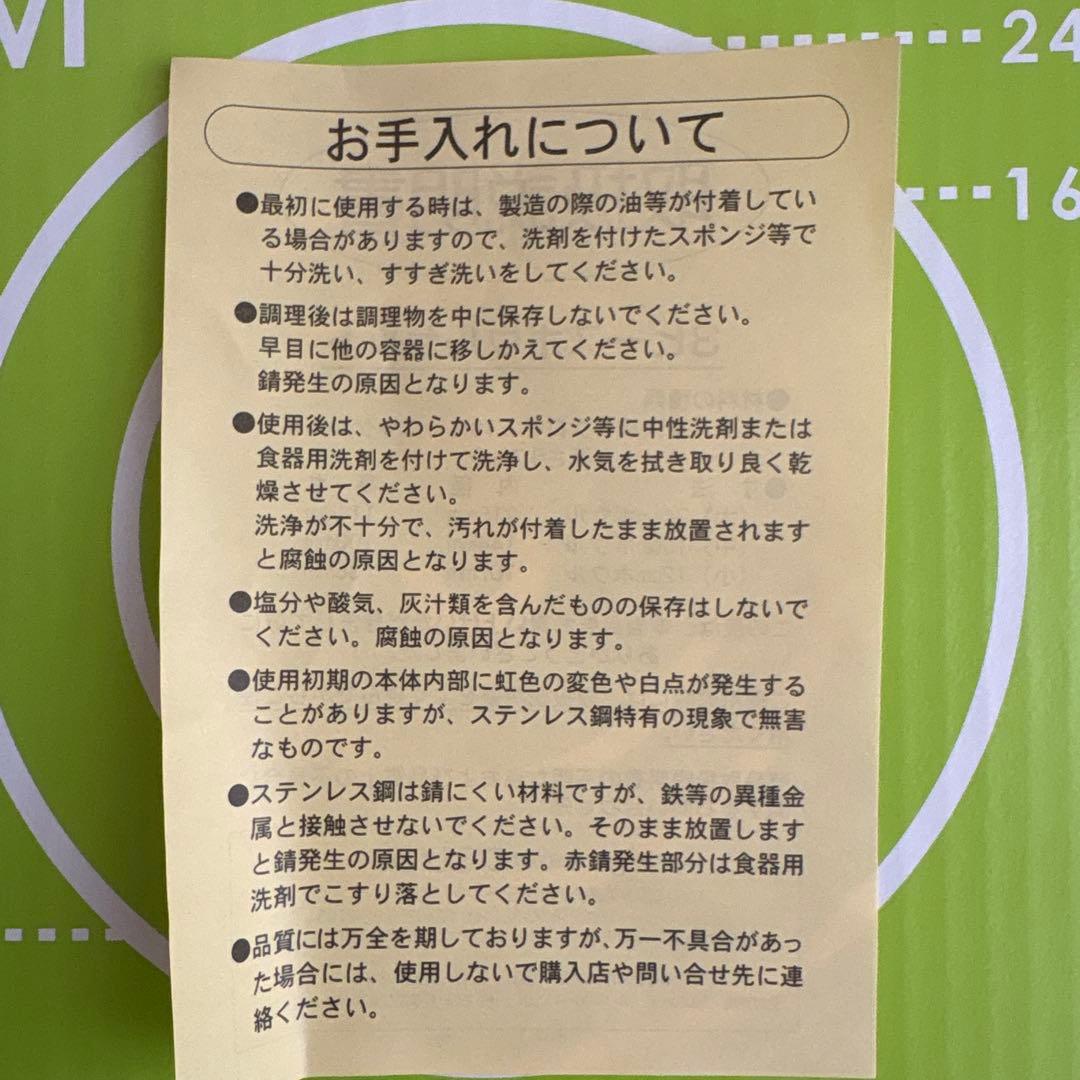 M
24
16
お手入れについて
●最初に使用する時は、製造の際の油等が付着してい
る場合がありますので、洗剤を付けたスポンジ等で
十分洗い、すすぎ洗いをしてください。
●調理後は調理物を中に保存しないでください。
早目に他の容器に移しかえてください。
錆発生の原因となります。
●使用後は、やわらかいスポンジ等に中性洗剤または
食器用洗剤を付けて洗浄し、水気を拭き取り良く乾
燥させてください。
洗浄が不十分で、汚れが付着したまま放置されます
と腐蝕の原因となります。
●塩分や酸気、灰汁類を含んだものの保存はしないで
ください。腐蝕の原因となります。
●使用初期の本体内部に虹色の変色や白点が発生する
ことがありますが、ステンレス鋼特有の現象で無害
なものです。
●ステンレス鋼は錆にくい材料ですが、鉄等の異種金
属と接触させないでください。そのまま放置します
と錆発生の原因となります。赤錆発生部分は食器用
洗剤でこすり落としてください。
●品質には万全を期しておりますが、万一不具合があっ
た場合には、使用しないで購入店や問い合せ先に連
絡ください。